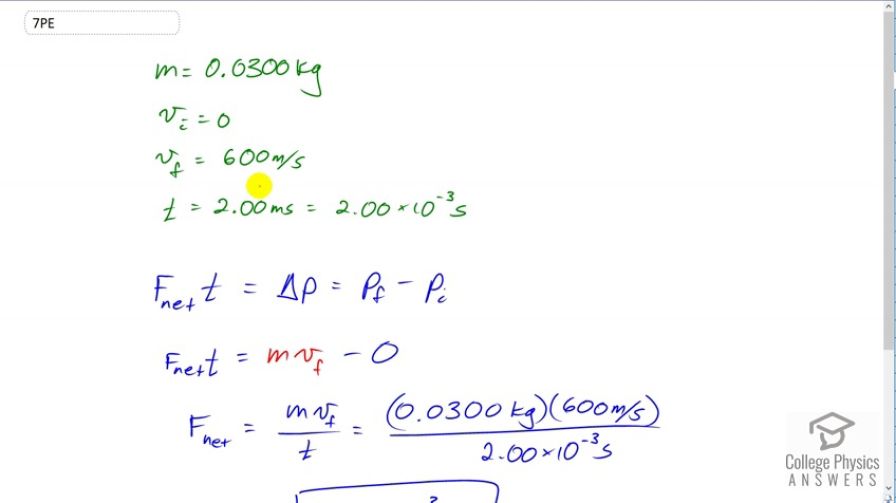 7PE
m = 0.0300 kg
v_i = 0
v_f = 600 m/s
t = 2.00 ms = 2.00 × 10^-3 s
F_net t = Δp = p_f - p_i
F_net t = m v_f - 0
F_net = m v_f / t = (0.0300 kg)(600 m/s) / 2.00 × 10^-3 s
College Physics
ANSWERS